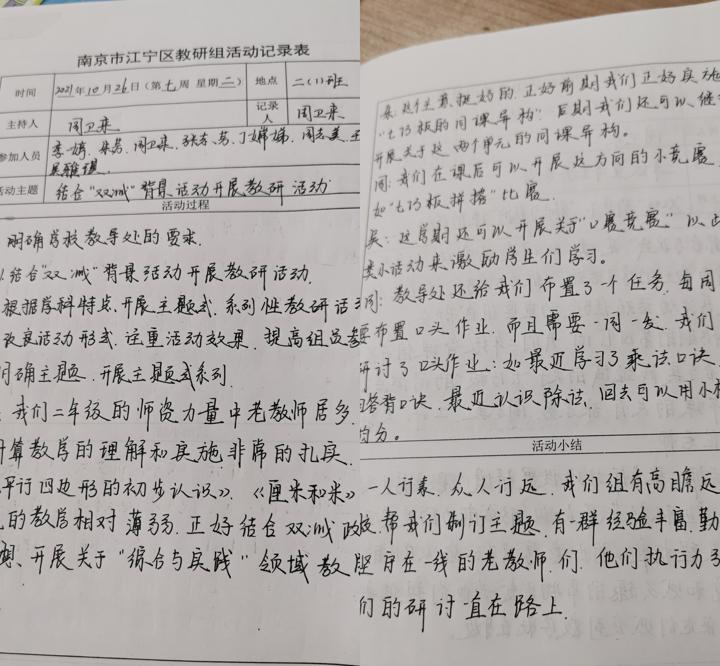 南京市江宁区教研组活动记录表
时间 2021年10月26日（第七周 星期二） 地点 二（1）班
主持人 周卫来 记录人 周卫来
参加人员 李婷、朱芳、周卫来、张冬芳、丁娣娣、周志美、王
吴雅琪
活动主题 结合“双减”背景活动开展教研活动
活动过程
明确学校教导处的要求.
结合“双减”背景活动开展教研活动.
根据学科特点、开展主题式、系列性教研活动
改良活动形式、注重活动效果、提高组员参
明确主题、开展主题式系列
：我们二年级的师资力量中老教师居多.
计算教学的理解和实施非常的扎实.
平行四边形的初步认识》、《厘米和米》
的教学相对薄弱.正好结合双减政
想、开展关于“综合与实践”领域教
朱：这个主意挺好的.正好前期我们正好实施
“七巧板的同课异构”.后期我们还可以继续
开展关于这两个单元的同课异构。
周：我们在课后可以开展这方向的小竞赛
如“七巧板拼搭”比赛.
吴：这学期还可以开展关于“口赛竞赛”以此
类小活动来激励学生们学习。
周：教导处还给我们布置了一个任务，每周
要布置口头作业.而且需要一周一发.我们
研讨了口头作业：如最近学习了乘法口诀.
答背口诀.最近认识除法.回去可以用小棒
均分。
活动小结
一人行素，众人行远.我们组有高瞻远
帮我们制订主题.有一群经验丰富勤
在一线的老教师们.他们执行力强
们的研讨一直在路上.